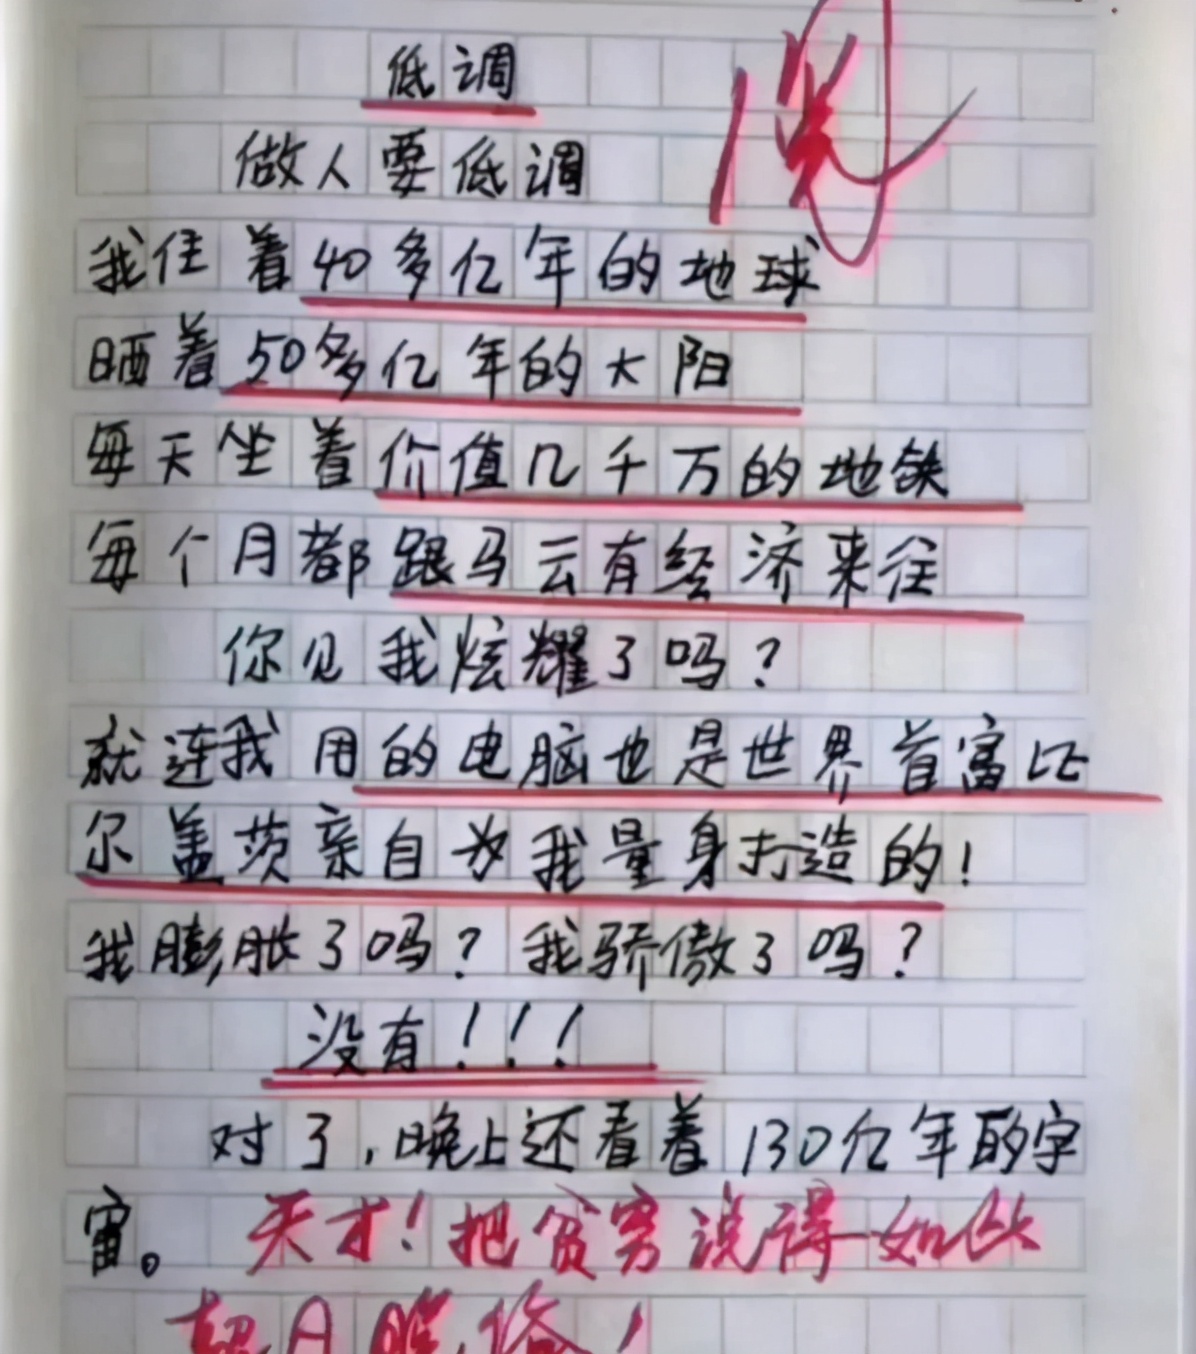 低调
做人要低调
我住着40多亿年的地球
晒着50多亿年的大阳
每天坐着价值几千万的地铁
每个月都跟马云有经济来往
你见我炫耀了吗?
就连我用的电脑也是世界首富比
尔盖茨亲自为我量身打造的!
我膨胀了吗?我骄傲了吗?
没有!!!
对了,晚上还看着130亿年的宇
宙。天才!把贫穷说得如此